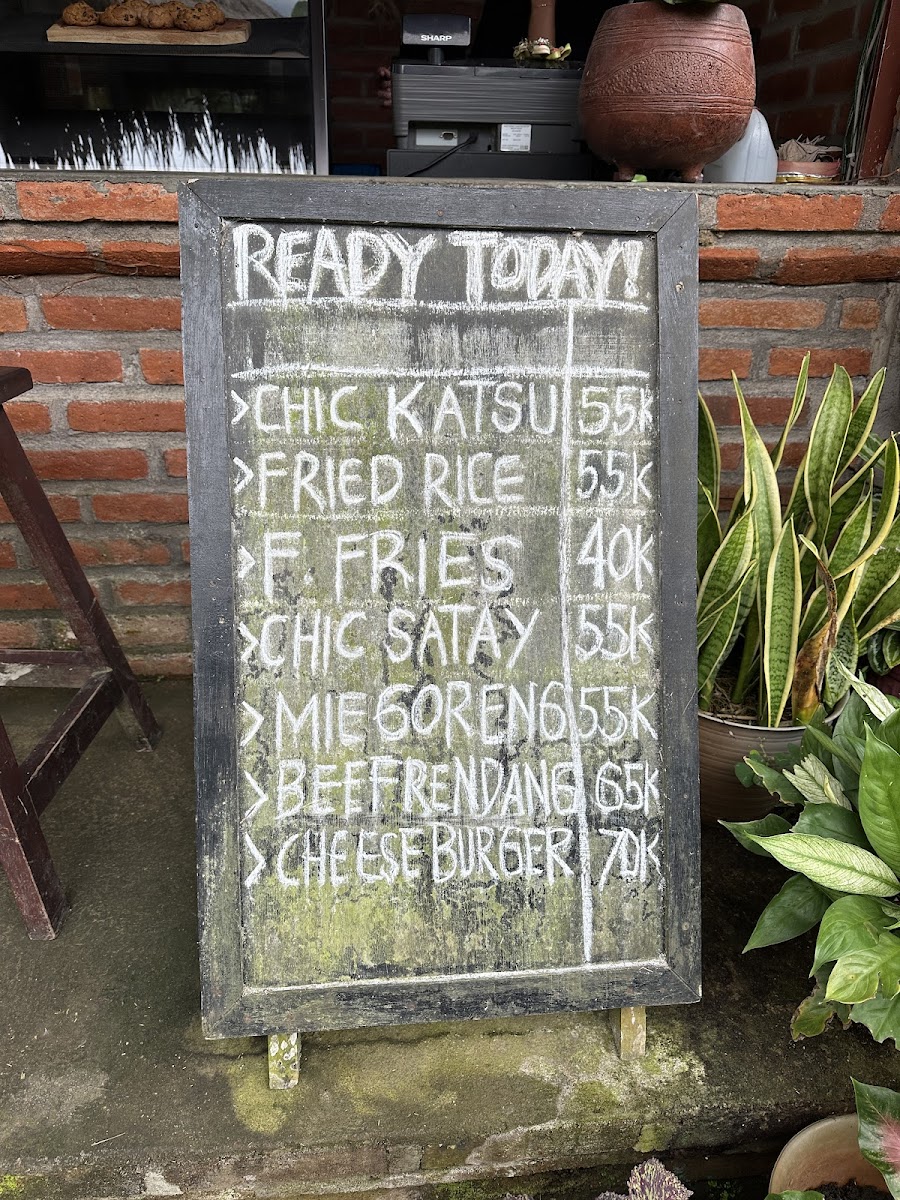 SHARP
READY TODAY!
>CHIC KATSU 55K
>FRIED RICE 55K
>F. FRIES 40K
>CHIC SATAY 55K
>MIE GORENG 55K
>BEEF RENDANG 65K
>CHEESE BURGER 70K